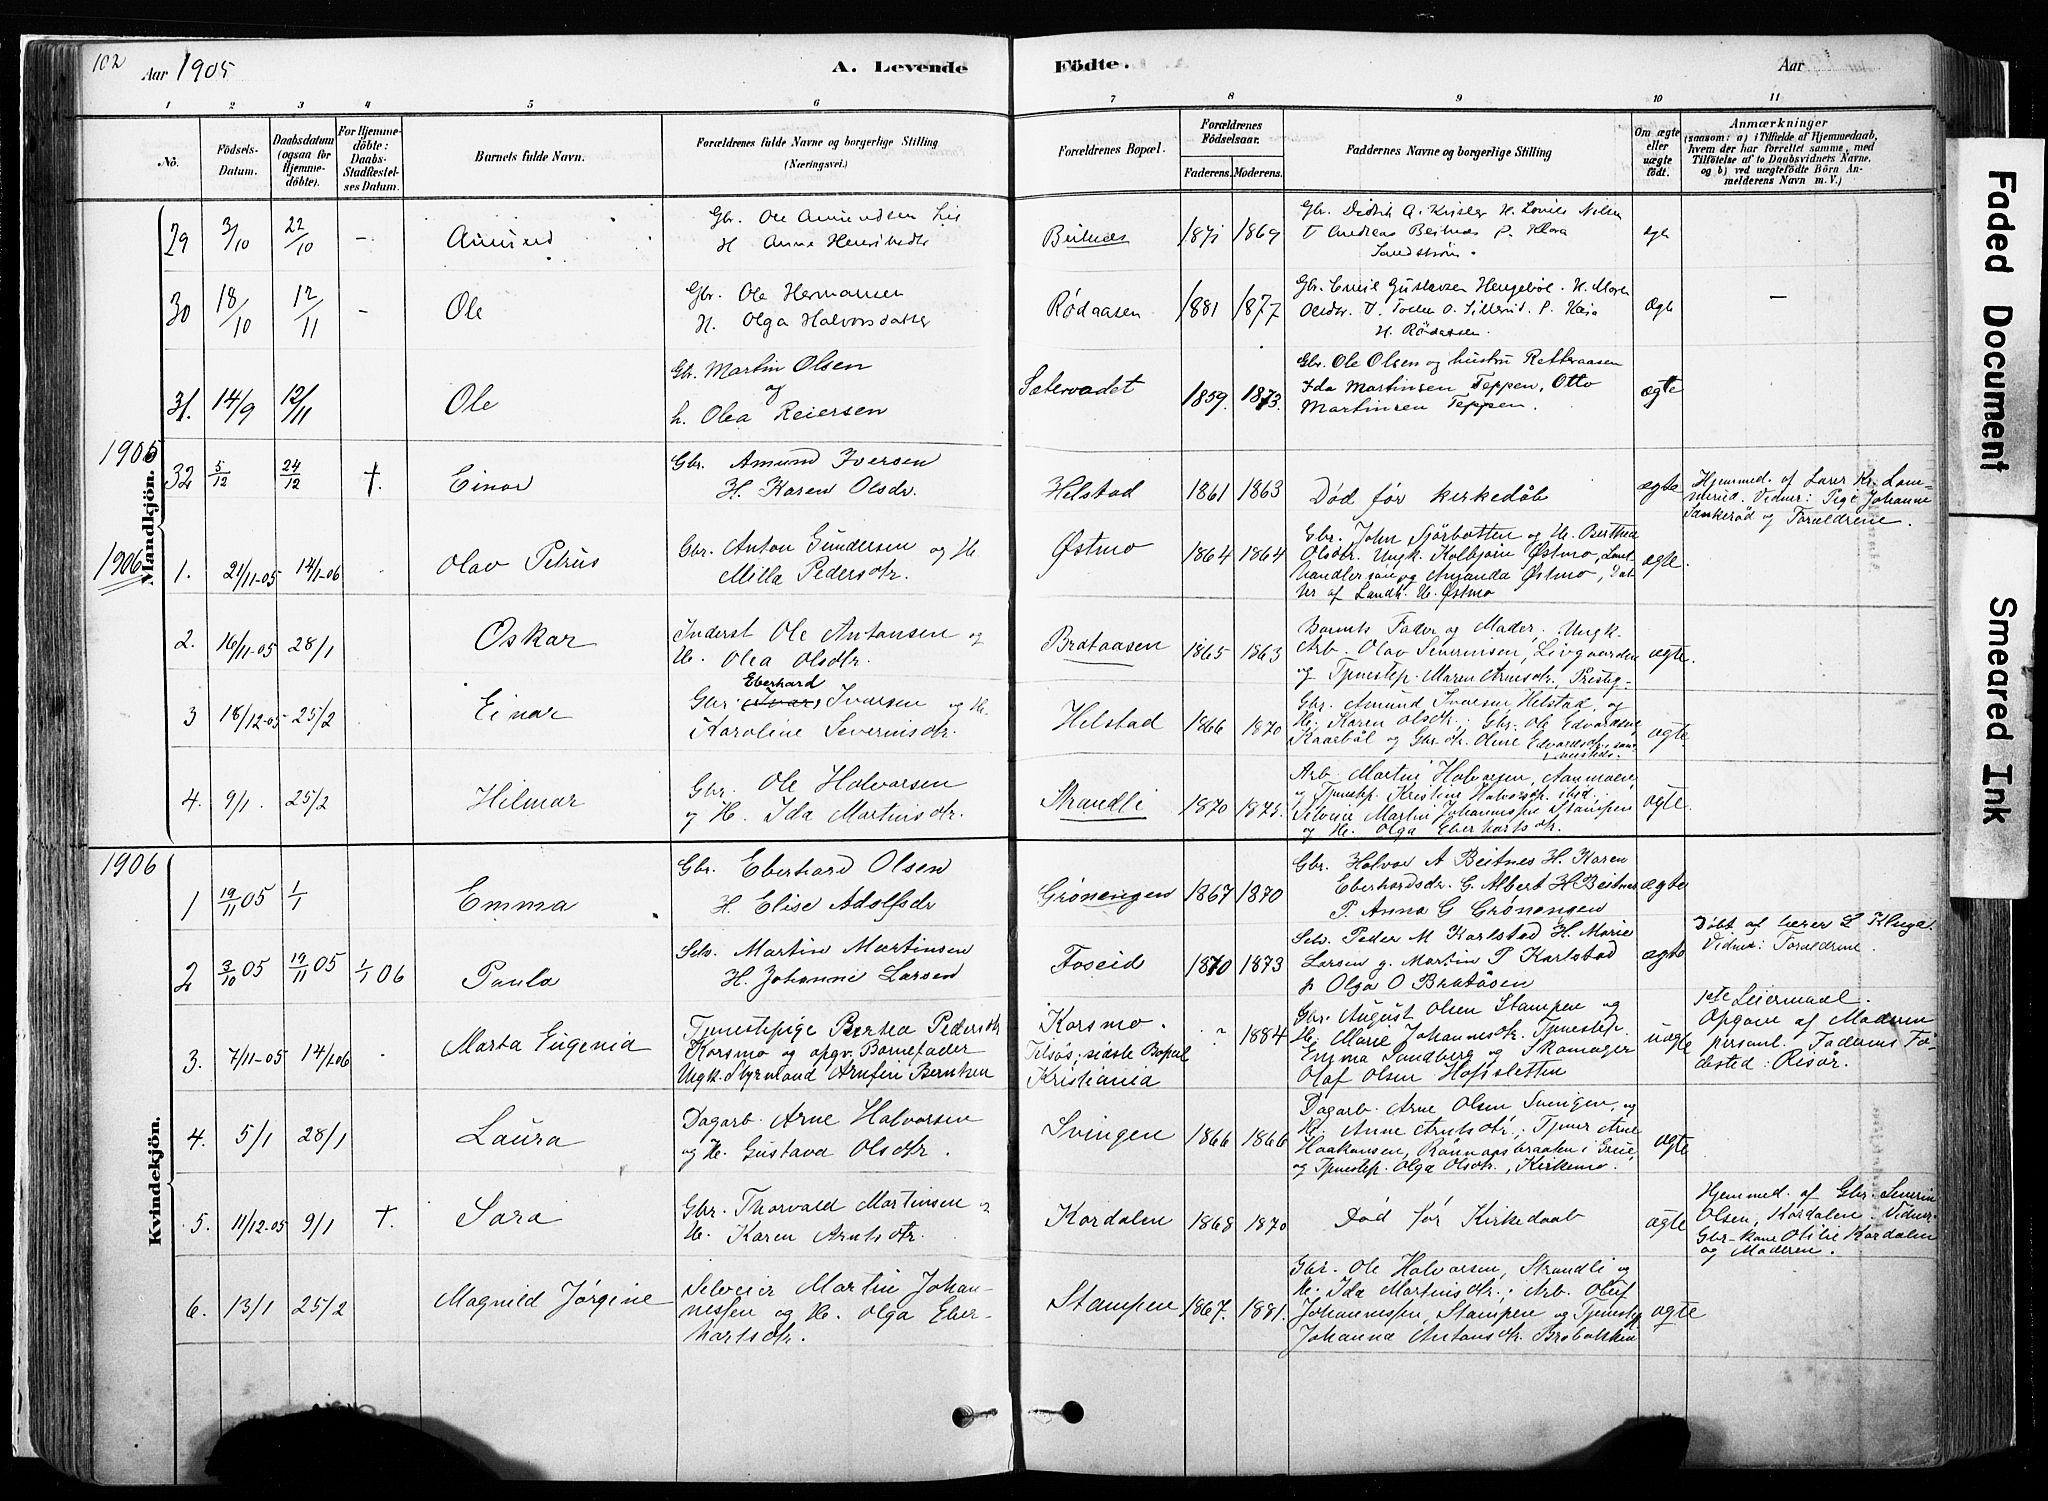 102
Aar 1905
A. Levende
Födte.
Aar
1 2 3 4 5 6 7 8 9 10 11
No.
Födsels-Datum.
Daabsdatum (ogsaa for Hjemme-döbte).
For Hjemme-döbte: Daabs-Stadfæstel-ses Datum.
Barnets fulde Navn.
Forældrenes fulde Navne og borgerlige Stilling (Næringsvei.)
Forældrenes Bopæl.
Forældrenes Födselsaar.
Faderens. Moderens.
Faddernes Navne og borgerlige Stilling
Om ægte eller uægte födt.
Anmærkninger
(saasom: a) i Tilfælde af Hjemmedaab, hvem der har forrettet samme, med Tilföielse af to Daabsvidners Navne, og b) ved uægtefödte Börn An-melderens Navn m. V.)
Mandkjön.
29 3/10 22/10 - Amund
Gbr. Ole Amundsen
H Anne
Beitnæs 1871 1869
Gbr. Didrik A.
Andreas Beitnæs P. Klara
Sandström.
30 18/10 12/11 - Ole
Gbr. Ole Hermansen
H. Olga Halvorsdatter
Rødaasen 1881 1877
Gbr. Emil Gustavsen Hengebøl. H.
H. Rødaasen.
Ægte -
31. 14/9 12/11 Ole
Gbr. Martin Olsen
og
h. Olea Reiersen
Sætervadet 1859. 1873.
Gbr. Ole Olsen og hustru Retteraasen
Ida Martinsen Teppen, Otto
Martinsen Teppen.
ægte
1905
32 5/12 24/12 †. Einar
Gbr. Amund Iversen
H. Karen Olsdr.
Helstad 1861 1863
Død før kirkedåb
ægte
Hjemmed. af Lærer Kr. Lom-
merud. Vidner: Pige Johanne
Sankerød og Forældrene.
1906
1. 21/11-05 14/1-06 Olav Petrus
Gbr. Anton Gundersen og H.
Milla Pedersdtr.
Østmo 1864 1864
Gbr. John Sjørbotten og H. Berthea
Olsdtr. Ungk. Kolbjørn Østmo, Land-
handlersøn og Amanda Østmo, Dat-
ter af Landh. H. Østmo
ægte.
2. 16/11-05 28/1 Oskar
Inderst Ole Antonsen og
H. Olea Olsdtr.
Brataasen 1865 1863
Barnets Fader og Moder, Ungk.
Arb. Olav Severinsen, Livgaarden
og Tjenestep. Maren Arnesdtr, Prestg-
ægte.
3 18/12-05 25/2 Einar
Eberhard
Gbr. (Ivar) Iversen og H.
Karoline Severinsdtr.
Helstad 1866 1870
Gbr. Amund Iversen Helstad, og
H. Karen Olsdtr.; Gbr. Ole Edvardsen,
Kaarbøl og Gbr. dtr. Oline Edvardsdtr, sam-
mesteds.
ægte.
4. 9/1. 25/2 Hilmar
Gbr. Ole Halvorsen
og H. Ida Martinsdtr.
Strandli 1870 1875.
Arb. Martin Halvorsen, Aanmoen
og Tjenestep. Kristine Halvorsdtr. ibid.;
Selveier Martin Johannessen Stampen
og H. Olga Eberhartsdtr.
ægte.
1906
Kvindekjön.
1 19/11 05 1/1 Emma
Gbr. Eberhard Olsen
H. Elise Adolfsdr
Grønengen 1867 1870
Gbr. Halvor A Beitnes H. Karen
Eberhardsdr. G. Albert H Beitnes
P. Anna G Grønengen
ægte
2 3/10 05 19/11 05 1/1 06 Paula
Selv. Martin Martinsen
H. Johanne Larsen
Foseid 1870 1873
Selv. Peder M Karlstad H. Marie
Larsen g. Martin P Karlstad
p Olga O Bratåsen
ægte
Døbt af lærer L Kluge.
Vidner: Forældrene.
3. 7/11-05 14/1 06 Marta Eugenia
Tjenestepige Berthea Pedersdtr
Korsmo og opgiv. Barnefader
Ungk. Styrmand Arnfin Berntsen
Korsmo.
sidste Bopæl
Kristiania
? 1884
Gbr. August Olsen Stampen og
H. Marie Johannesdtr. Tjenestep.
Emma Sandberg og Skomager
Olaf Olsen Hofsletten
uægte
1ste Leiermaal.
Opgave af Moderen
personl. Faderens Fø-
dested: Risør.
4. 5/1 28/1 Laura
Dagarb. Arne Halvorsen
og H. Gustava Olsdtr.
Svingen 1866 1866
Dagarb. Arne Olsen Svingen, og
H. Anne Arntsdtr.; Tjener Arne
Haakonsen, i Grue,
og Tjenestep. Olga Olsdtr., Kirkemo.
ægte
5. 11/12-05 9/1 †. Sara
Gbr. Thorvald Martinsen og
H. Karen Arntsdtr.
Kordalen 1868 1870
Død før Kirkedaab
ægte
Hjemmed. af Gbr. Severin
Olsen, Kordalen. Vidner:
Gbr-kone Otilie Kordalen
og Moderen.
6. 13/1 25/2 Magnild Jørgine
Selveier Martin Johan-
nessen og H. Olga Eber-
hartsdtr.
Stampen 1867. 1881.
Gbr. Ole Halvorsen, Strandli og
H. Ida Martinsdtr.; Arb. Oluf
Johannessen, Stampen og Tjenestep
Johanna Antonsdtr. Brøbakken
ægte
Faded Document
Smeared Ink